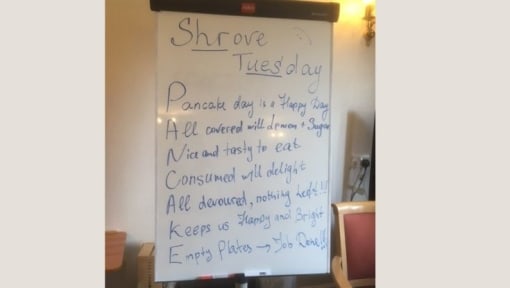 Shrove
Tuesday
Pancake day is a Happy Day
All covered will Lemon + Sugar
Nice and tasty to eat
Consumed will delight
All devoured, nothing left!!!
Keeps us Happy and Bright
Empty Plates → Job Done!!!